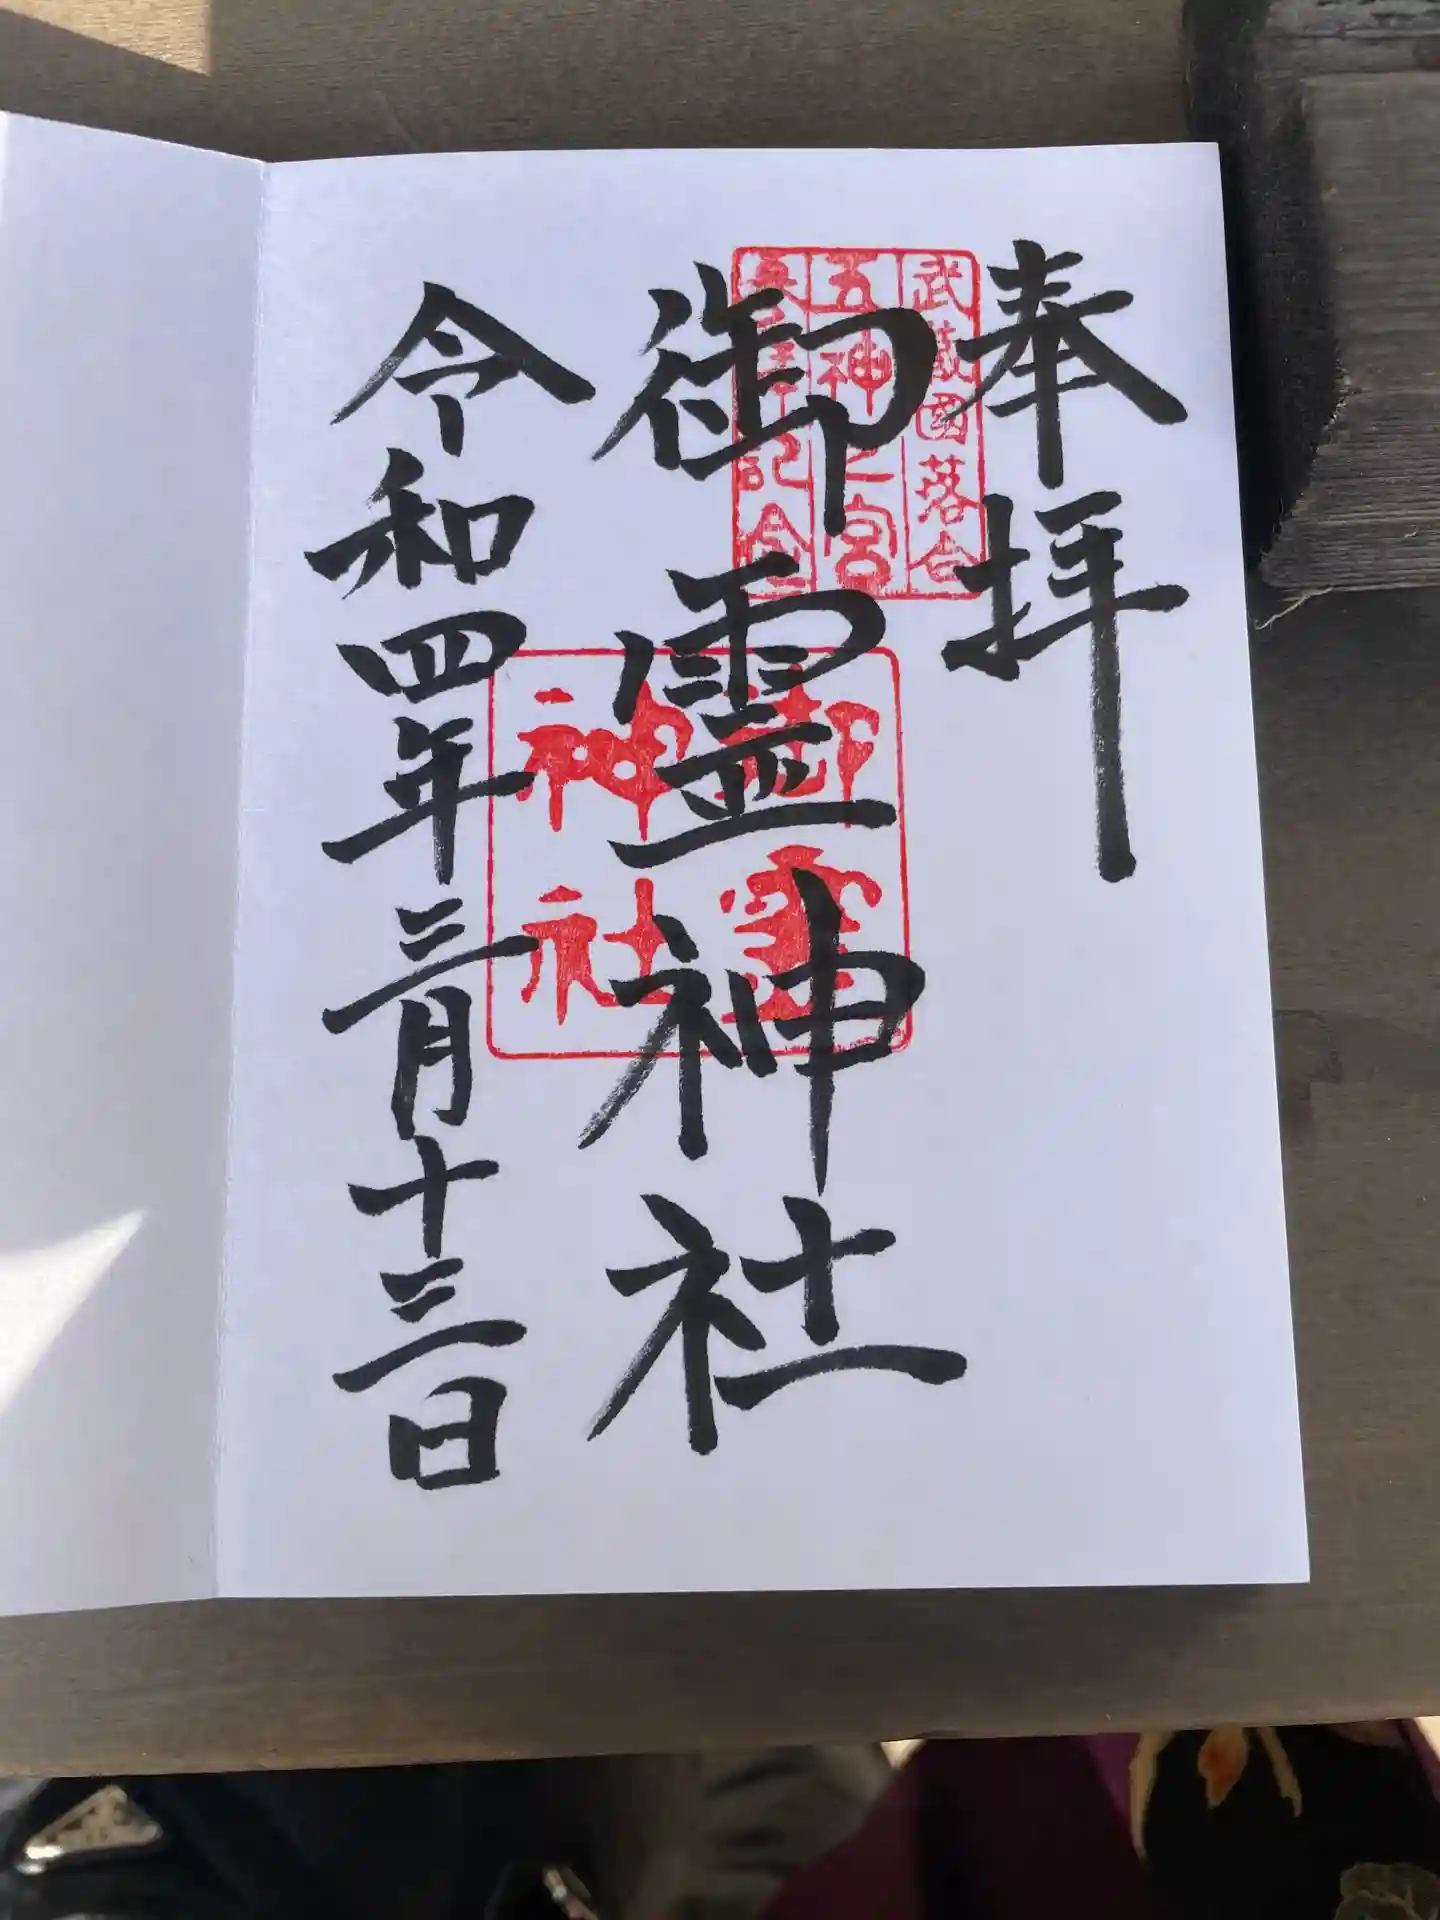 奉拝
武蔵國落合
五神之宮
御靈神社
御霊神社
令和四年三月十三日